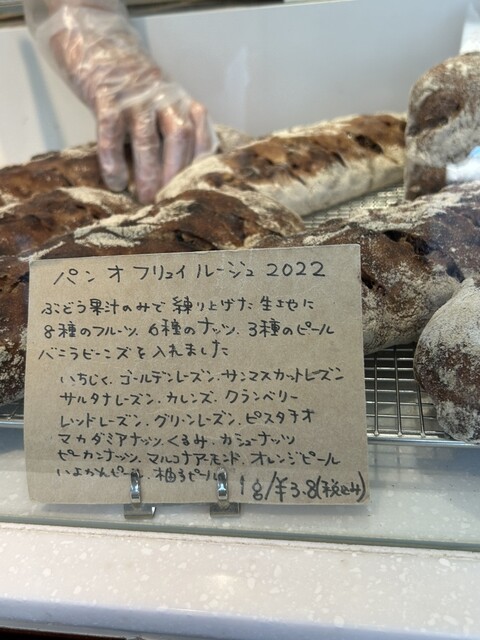 パン オ フリュイ ルージュ 2022
ぶどう果汁のみで練り上げた生地に
8種のフルーツ、6種のナッツ、3種のピール
バニラビーンズを入れました
いちじく、ゴールデンレーズン、サンマスカットレーズン
サルタナレーズン、カレンズ、クランベリー
レッドレーズン、グリーンレーズン、ピスタチオ
マカダミアナッツ、くるみ、カシューナッツ
ピーカンナッツ、マルコナアーモンド、オレンジピール
いよかんピール、柚子ピール 1g/¥3.8(税込み)